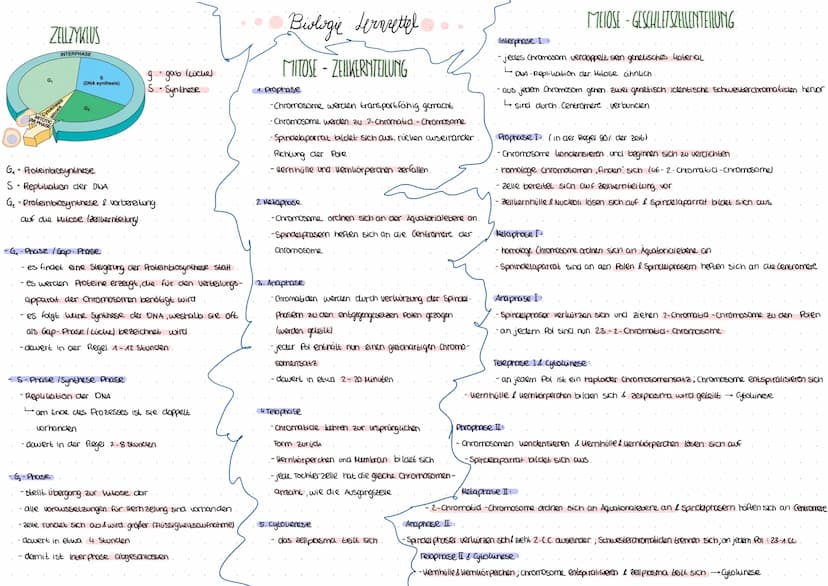 Biologie Lernzettel
ZELLZYKLUS
INTERPHASE
G₁
S
(DNA synthesis)
G₂
g = gab (Lücke)
S = Synthese
G₁ - Proteinbiosynthese
S - Replikation der DNA
G₂ - Proteinbiosynthese & Vorbereitung
auf die Mitose (Zellkernteilung)
G₁ - Phase / Gap - Phase
- es findet eine Steigerung der Proteinbiosynthese statt
- es werden Proteine erzeugt, die für den Verteilungs-
apparat der Chromosomen benötigt wird
- es folgt keine Synthese der DNA, weshalb sie oft
als Gap-Phase (Lücke) bezeichnet wird
- dauert in der Regel 1-12 Stunden
- S - Phase / Synthese Phase
- Replikation der DNA
↳ am Ende des Prozesses ist sie doppelt
vorhanden
- dauert in der Regel 7-8 Stunden
G₂ - Phase
- stellt Übergang zur Mitose dar
- alle Voraussetzungen für Kernteilung sind vorhanden
- Zelle rundet sich ab & wird größer (Flüssigkeitsaufnahme)
- dauert in etwa 4 Stunden
- damit ist Interphase abgeschlossen
MITOSE - ZELLKERNTEILUNG
1. Prophase
- Chromosome werden transportfähig gemacht
- Chromosome werden zu 2-Chromatid-Chromosome
- Spindelapparat bildet sich aus, rücken auseinander
Richtung der Pole
- Kernhülle und Kernkörperchen zerfallen
2. Metaphase
- Chromosome ordnen sich an der Äquatorialebene an
- Spindelfasern heften sich an die Centromere der
Chromosome
3. Anaphase
- Chromatiden werden durch Verkürzung der Spindel-
fasern zu den entgegengesetzen Polen gezogen
(werden geteilt)
- jeder Pol enthält nun einen gleichartigen Chromo-
somensatz
- dauert in etwa 2-20 Minuten
4. Telophase
- Chromatide kehren zur ursprünglichen
Form zurück
- Kernkörperchen und Membran bildet sich
- jede Tochterzelle hat die gleiche Chromosomen-
anzahl, wie die Ausgangszelle
5. Cytokinese
- das Zellplasma teilt sich
MEIOSE - GESCHLECHTSZELLENTEILUNG
Interphase I
- jedes Chromosom verdoppelt sein genetisches Material
↳ DNA-Replikation der Mitose ähnlich
- aus jedem Chromosom gehen zwei genetisch identische Schwesterchromatiden hervor
↳ sind durch Centromere verbunden
Prophase I (in der Regel 90% der Zeit)
- Chromosome kondensieren und beginnen sich zu verdichten
- homologe Chromosomen „finden" sich (46-2-Chromatid-Chromosome)
- Zelle bereitet sich auf Zellkernteilung vor
- Zellkernhülle & Nukleoli lösen sich auf & Spindelapparat bildet sich aus
Metaphase I
- homologe Chromosome ordnen sich an Äquatorialebene an
- Spindelapparat sind an den Polen & Spindelfasern heften sich an die Centromere
Anaphase I
- Spindelfaser verkürzen sich und ziehen 2-Chromatid-Chromosome zu den Polen
- an jedem Pol sind nun 23-2-Chromatid-Chromosome
Telephase I & Cytokinese
- an jedem Pol ist ein haploider Chromosomensatz; Chromosome entspiralisieren sich
- Kernhülle & Kernkörperchen bilden sich & Zellplasma wird geteilt → Cytokinese
Prophase II
- Chromosomen kondensieren & Kernhülle & Kernkörperchen lösen sich auf
- Spindelapparat bildet sich aus
Metaphase II
- 2-Chromatid-Chromosome ordnen sich an Äquatorialebene an & Spindelfasern haften sich an Centromere
Anaphase II
- Spindelfaser verkürzen sich & zieht 2-C-C auseinander; Schwesterchromatiden trennen sich, an jedem Pol:
Telophase II & Cytokinese
- Kernhülle & Kernkörperchen, Chromosome entspiralisieren & Zellplasma teilt sich → Cytokinese